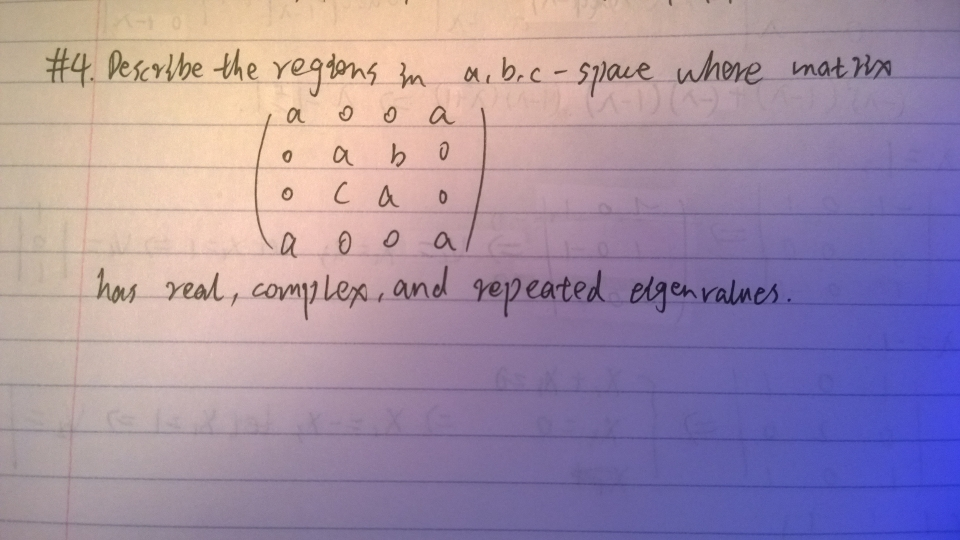 #4. Describe the regions in a,b,c - space where matrix
a 0 0 a
0 a b 0
0 c a 0
a 0 0 a
has real, complex, and repeated eigenvalues.